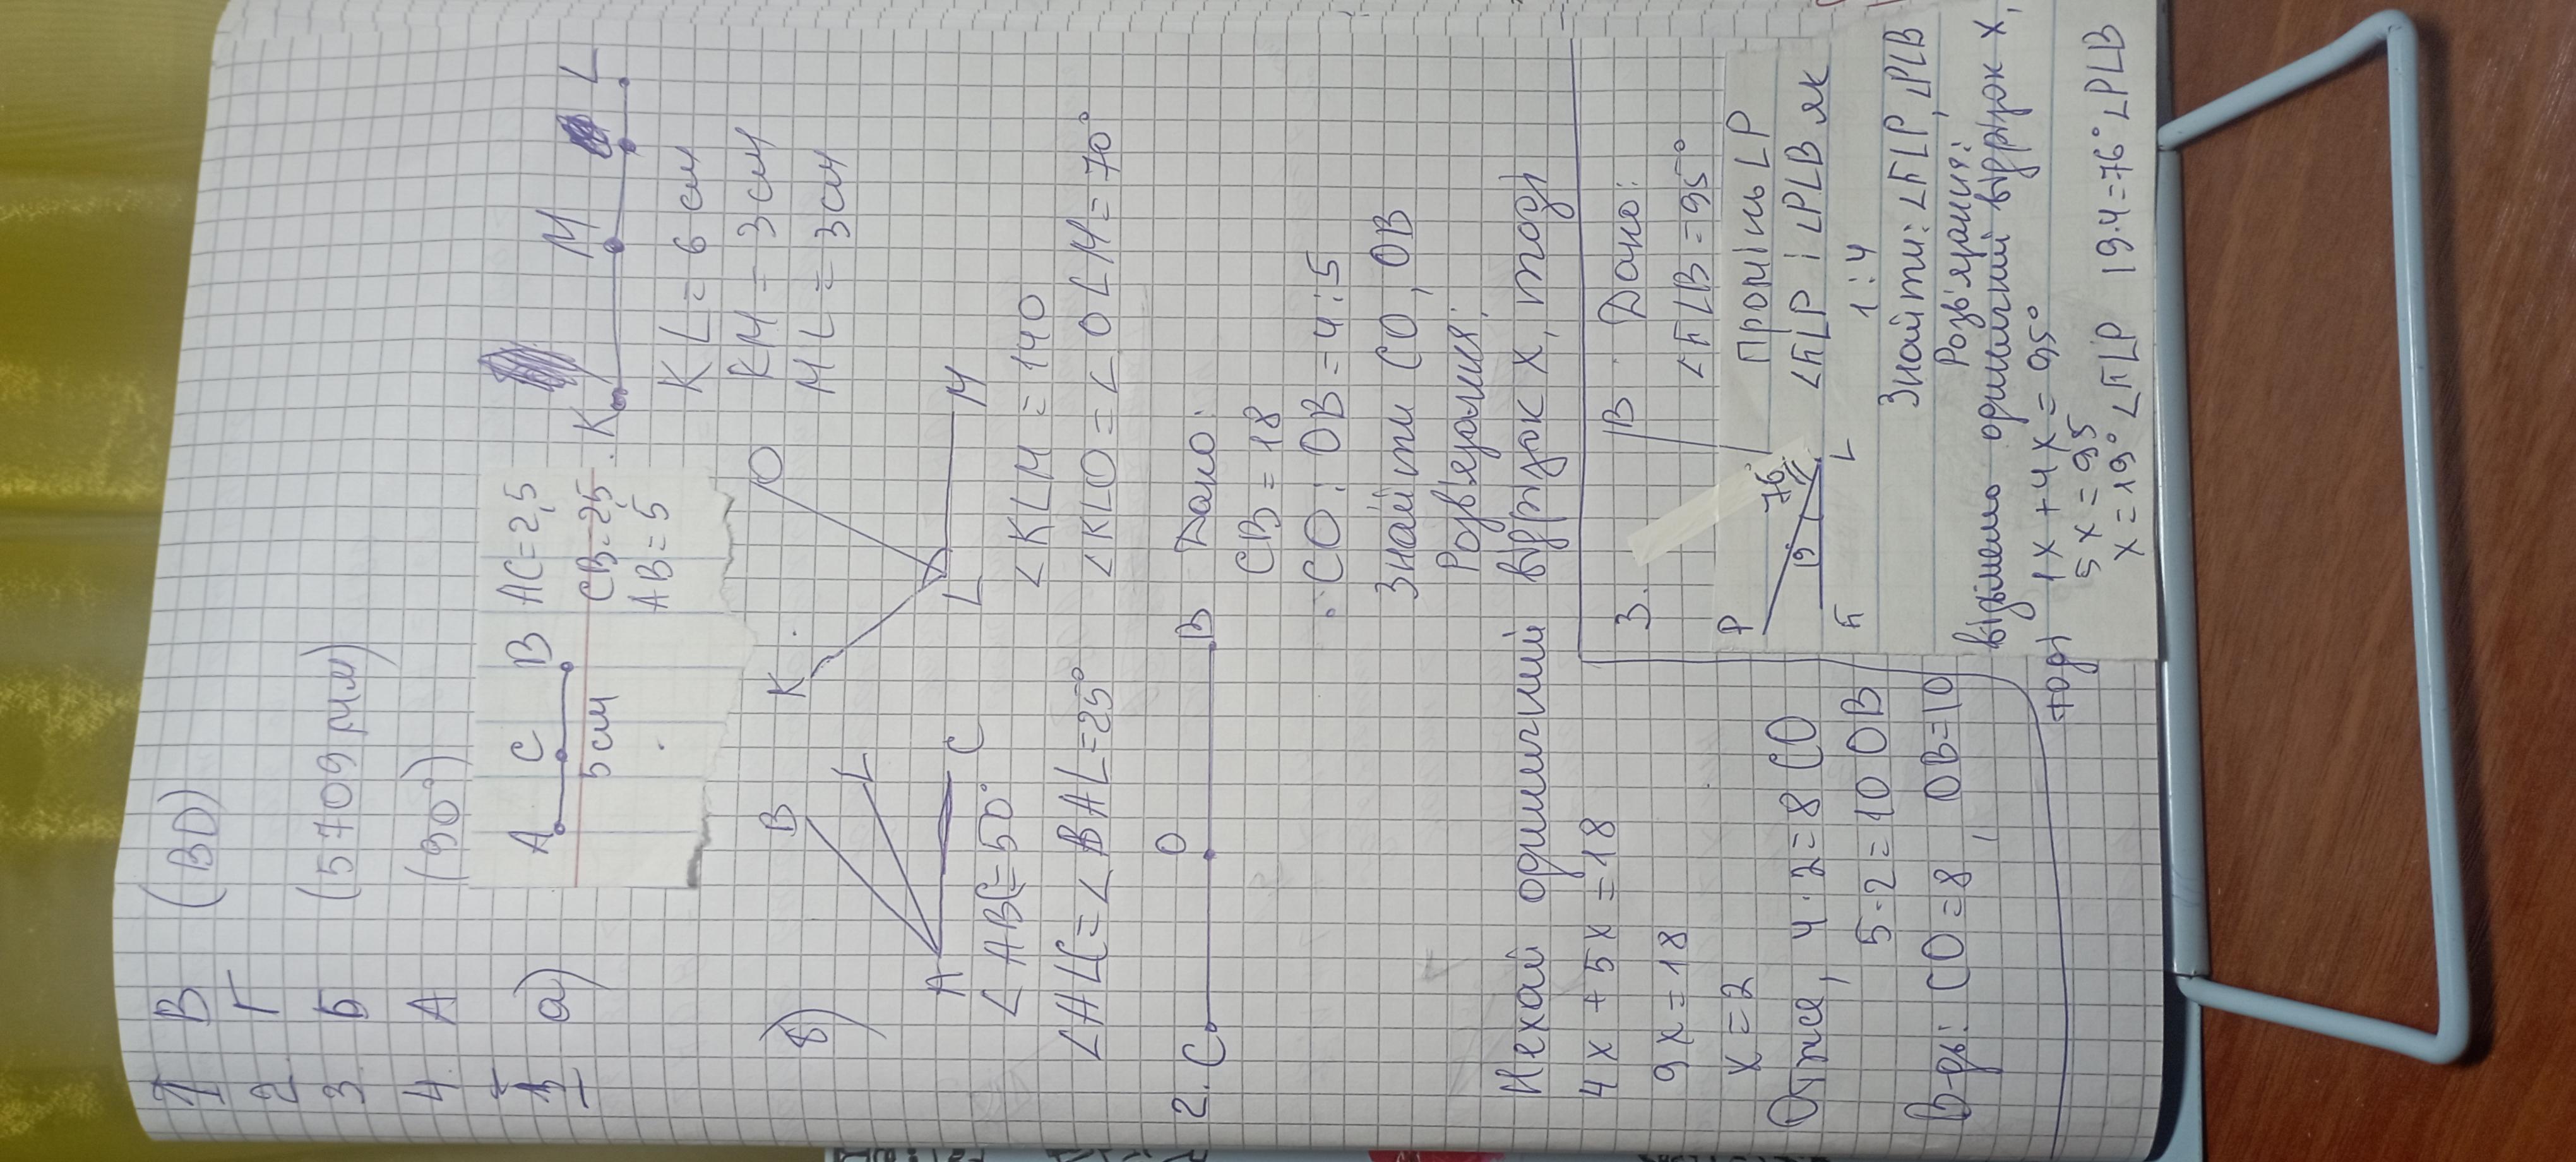 1 В (BD)
2 Г
3 Б (5709 мм)
4 А (90°)
1 а)
A C B AC=2,5
5 см CB=2,5
AB=5
K M L
KL=6 см
KM=3 см
ML=3см
б)
B L
A C
∠ABC=50°
∠ALC=∠BAL=25°
K O
L M
∠KLM=140
∠KLO=∠OLM=70°
2. C O B Дано:
CB=18
CO:OB=4:5
Знайти CO, OB
Розв'язання:
Нехай одиничний відрізок x, тоді
4x+5x=18
9x=18
x=2
Отже, 4·2=8 CO
5·2=10 OB
В-дь: CO=8, OB=10
3. B Дано:
∠ПLB=95°
P 76 Промінь LP
19° ∠ПLP і ∠PLB як
П L 1:4
Знайти: ∠ПLP, ∠PLB
Розв'язання:
візьмемо одиничний відрізок x,
тоді 1x+4x=95°
5x=95
x=19° ∠ПLP 19·4=76° ∠PLB